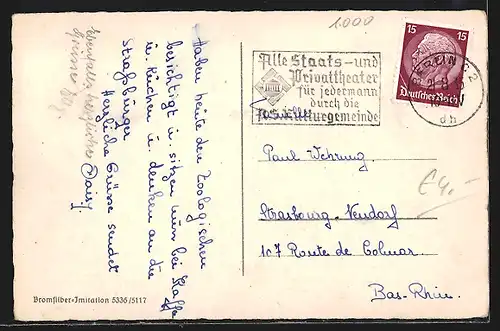 1.000
Alle Staats- und
Privattheater
für jedermann
durch die
NS. Kulturgemeinde
15 15
Deutsches Reich
BERLIN C 2
dh
Haben heute den Zoologischen
besichtigt u. sitzen nun bei Kaffee
u. Kuchen u. denken an die
Straßburger
Herzliche Grüsse sendet
Daisy.
Ebenfalls herzlicher
Paul Wehrung
Strasbourg-Neudorf
107 Route de Colmar
Bas-Rhin.
€ 4,-
Bromsilber-Imitation 5336/5117